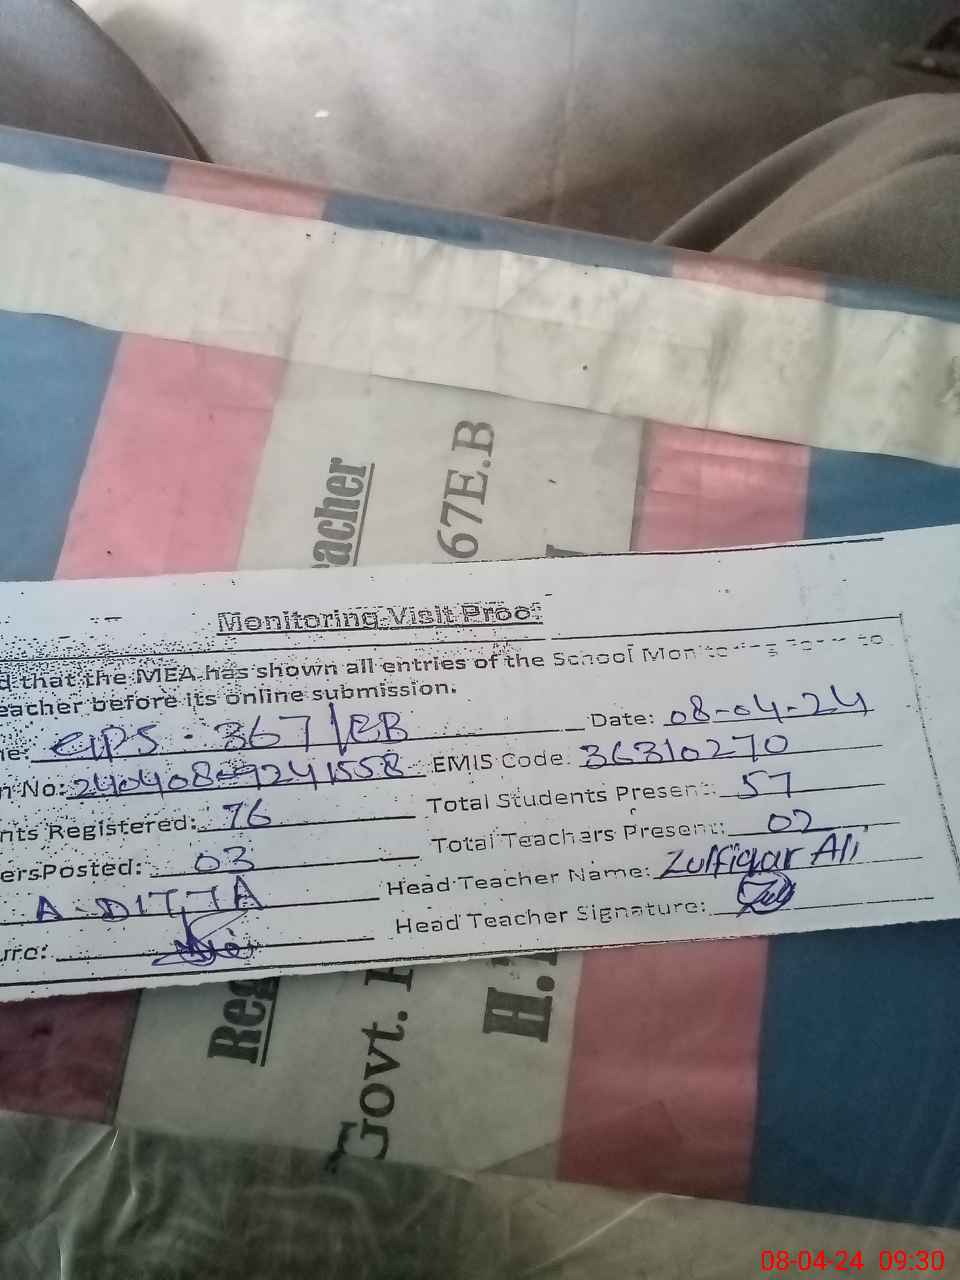 eacher
67E.B
Monitoring Visit Proof
d that the MEA has shown all entries of the School Monitoring Form to
eacher before its online submission.
me: GPS. 367/EB Date: 08-04-24
n No: 240408-9241558 EMIS Code: 36310270
nts Registered: 76 Total Students Present: 57
ersPosted: 03 Total Teachers Present: 02
A-DITTA Head Teacher Name: Zulfiqar Ali
ure: Head Teacher Signature:
Reg
Govt. P
H.
08-04-24 09:30